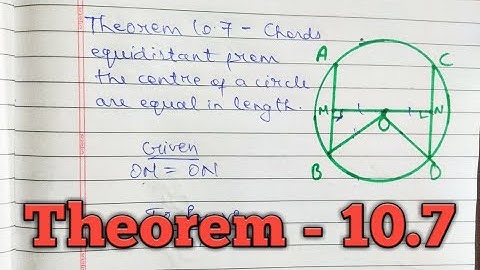 Theorem 10.7 - Chords
equidistant from
the centre of a circle
are equal in length.
Given
OM = ON
A
C
M
N
O
B
D
Theorem - 10.7